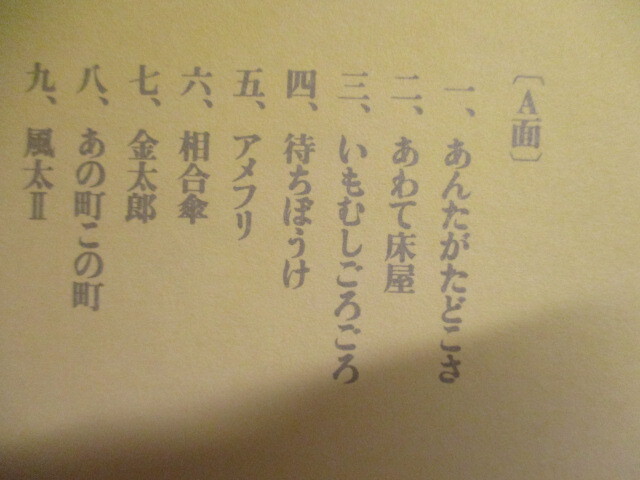 〔A面〕
一、あんたがたどこさ
二、あわて床屋
三、いもむしごろごろ
四、待ちぼうけ
五、アメフリ
六、相合傘
七、金太郎
八、あの町この町
九、風太Ⅱ